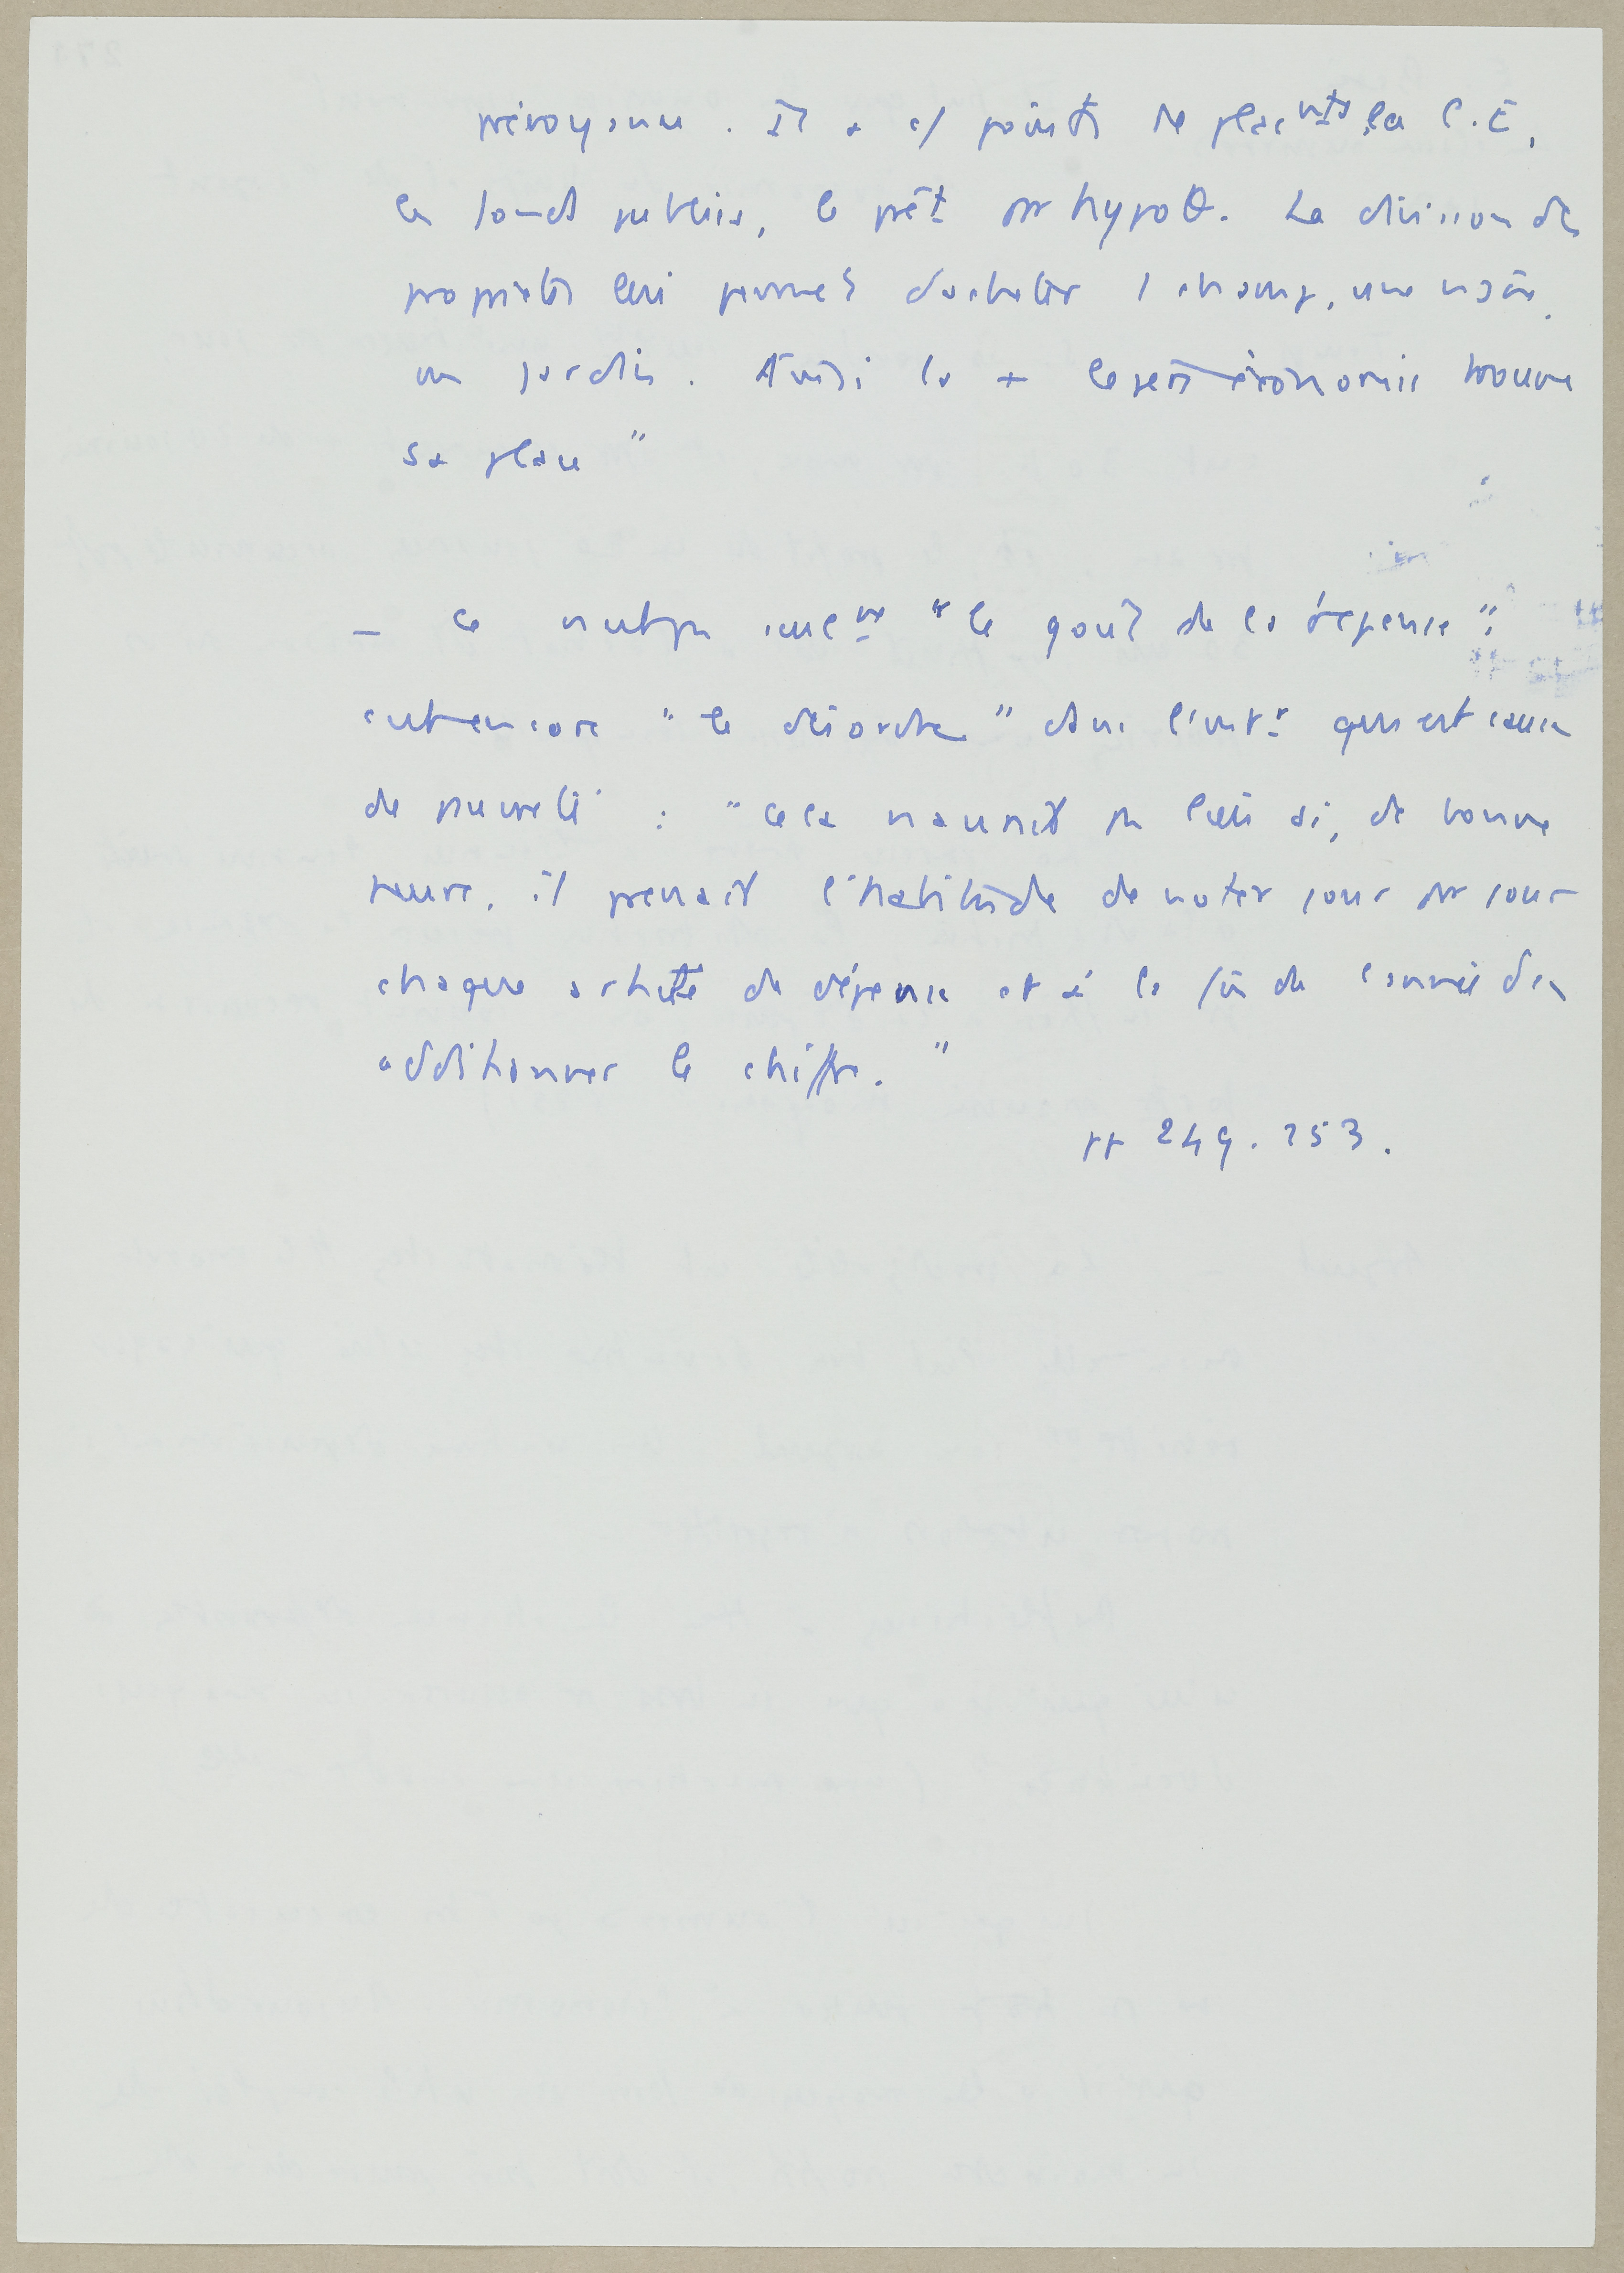 prévoyance. Il a c/ points de placnts, la C.E,
les fonds publics, le prêt sur hypoth. La division des
propriétés lui permet d'acheter 1 champ, une vigne,
un jardin. Ainsi la + légère économie trouve
sa place"
– Ce n'est pas seulnt "le goût de la dépense":
c'est encore "le désordre" dans l'int.r qui est cause
de pauvreté : "Cela n'aurait pas lieu si, de bonne
heure, il prenait l'habitude de noter jour par jour
chaque achat de dépense et à la fin de l'année d'en
additionner le chiffre."
pp 249.253.